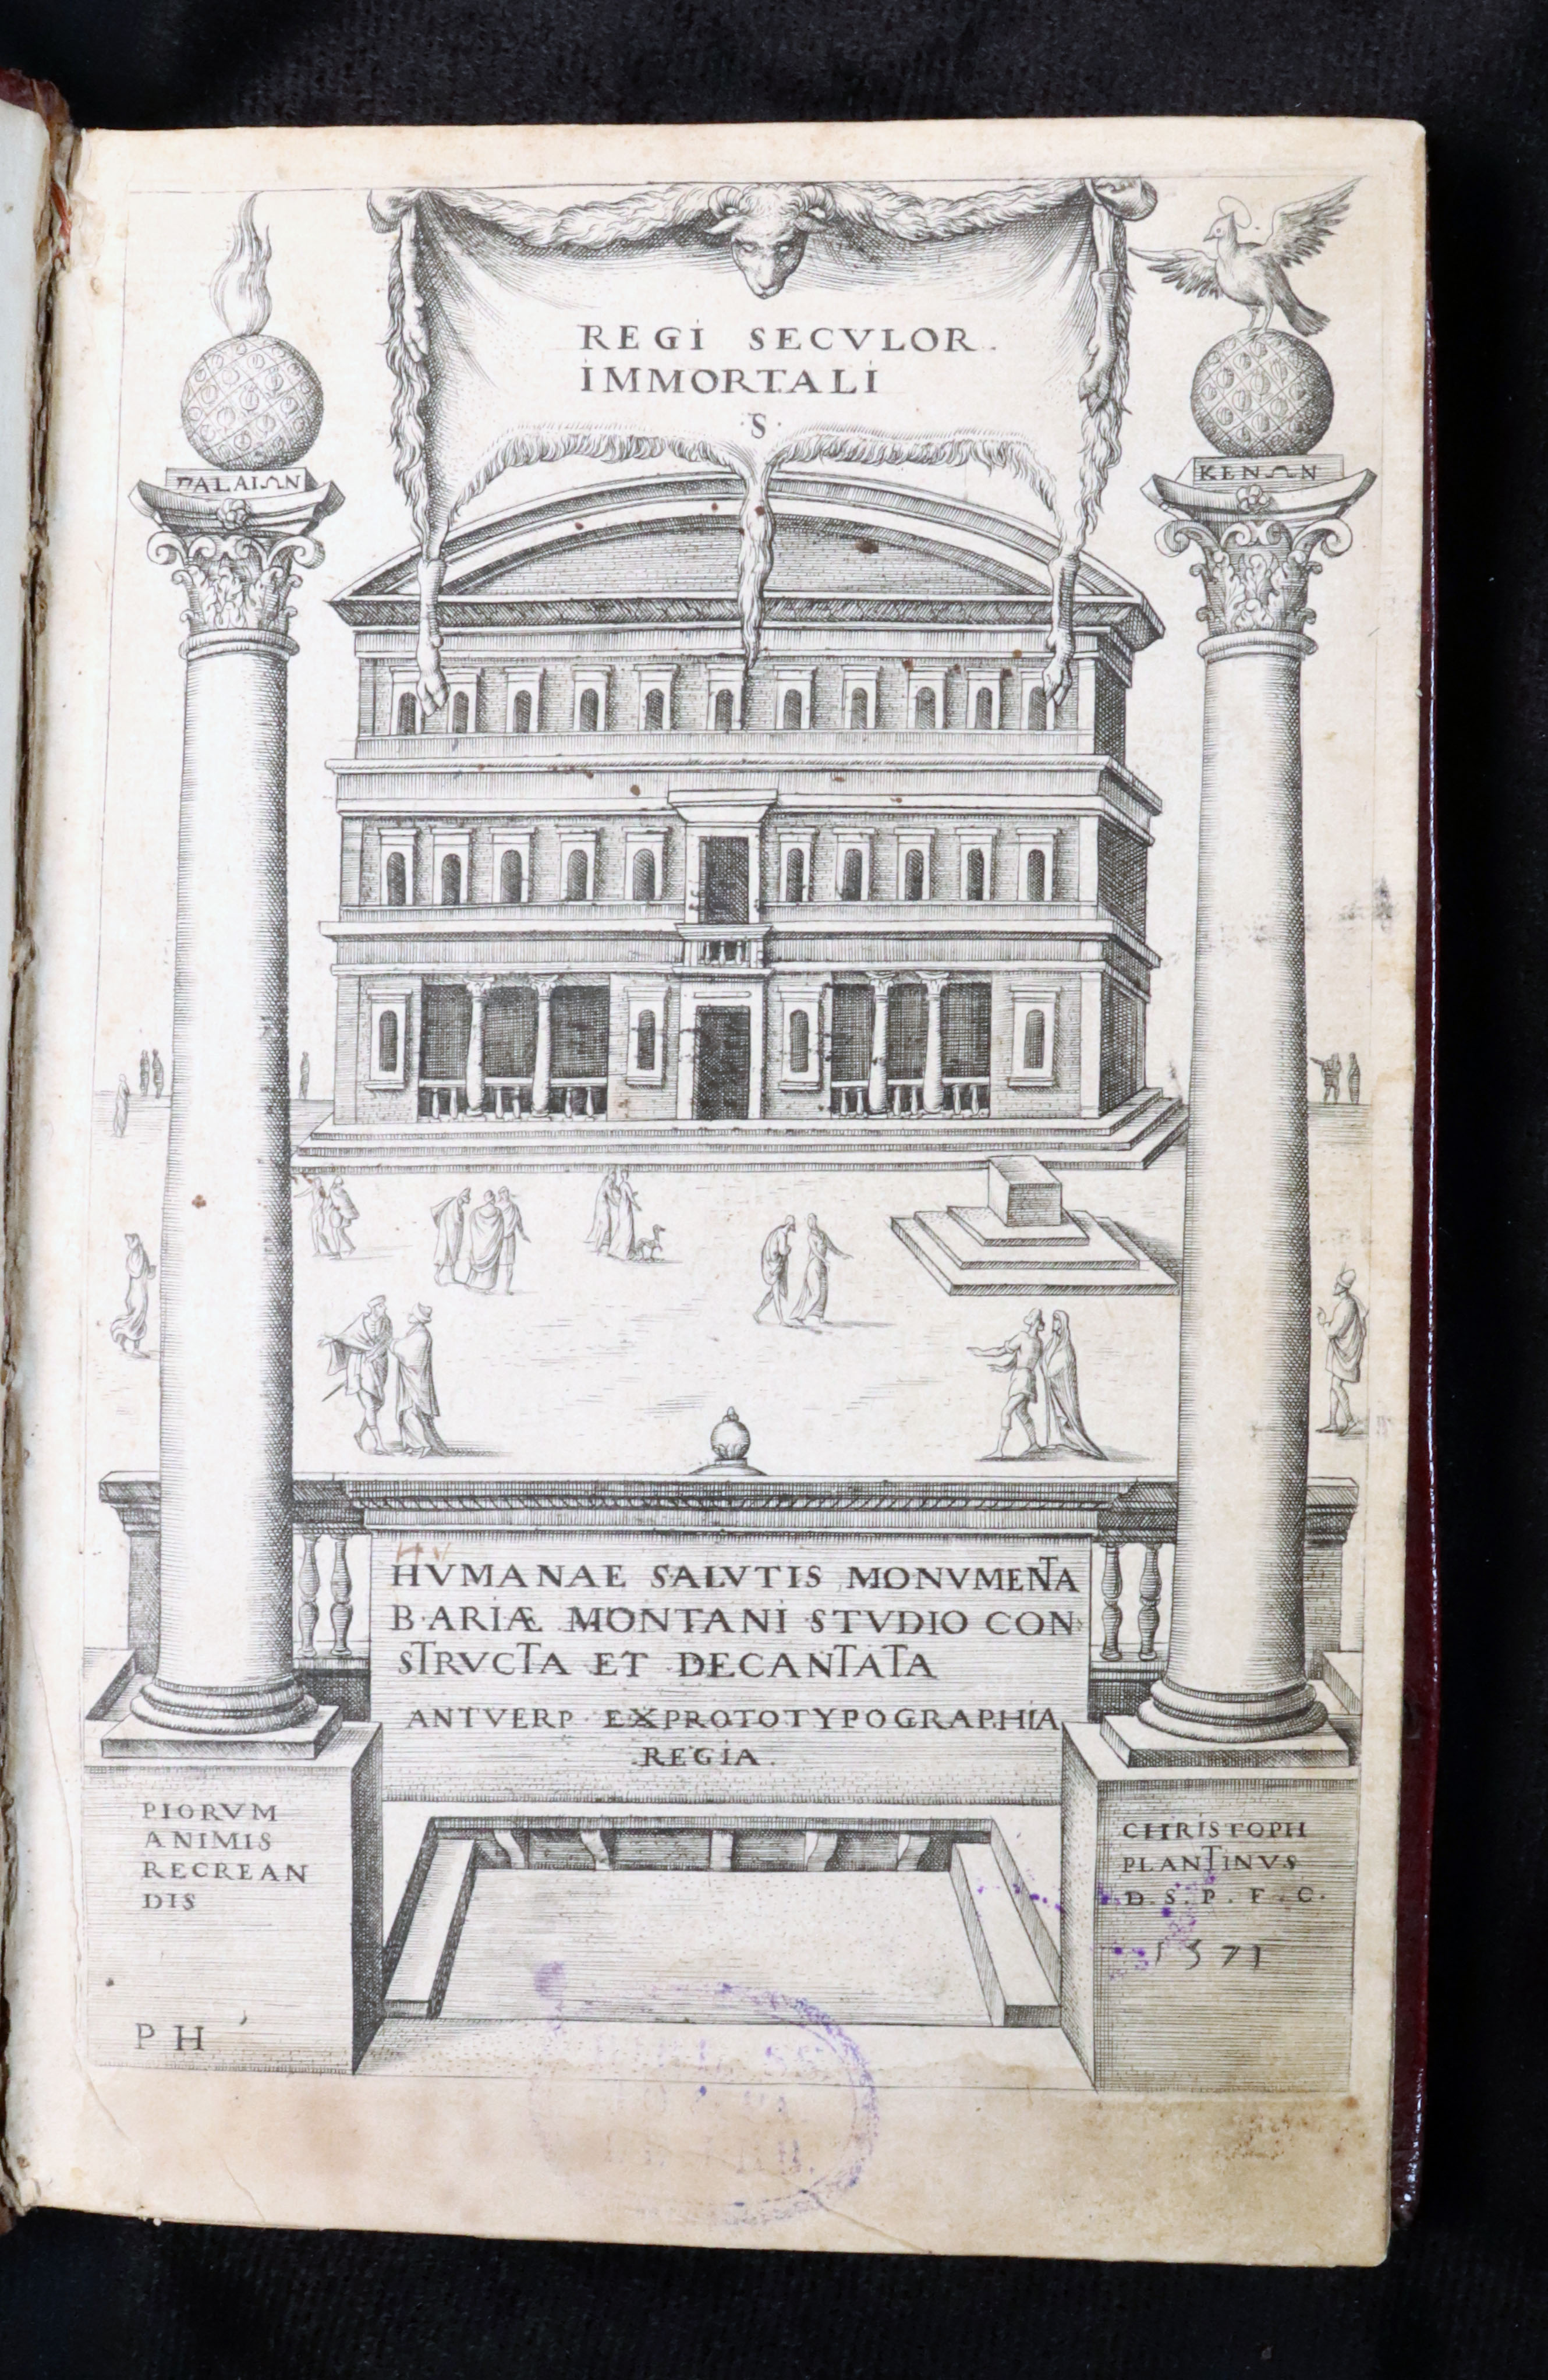 REGI SECVLOR.
IMMORTALI
·S·
PALAIΩN
KENΩN
HVMANAE SALVTIS MONVMENTA
B·ARIÆ MONTANI STVDIO CON
STRVCTA ET DECANTATA
ANTVERP EXPROTOTYPOGRAPHIA
REGIA.
PIORVM
ANIMIS
RECREAN
DIS
PH
CHRISTOPH
PLANTINVS
D.S.P.F.C.
1571